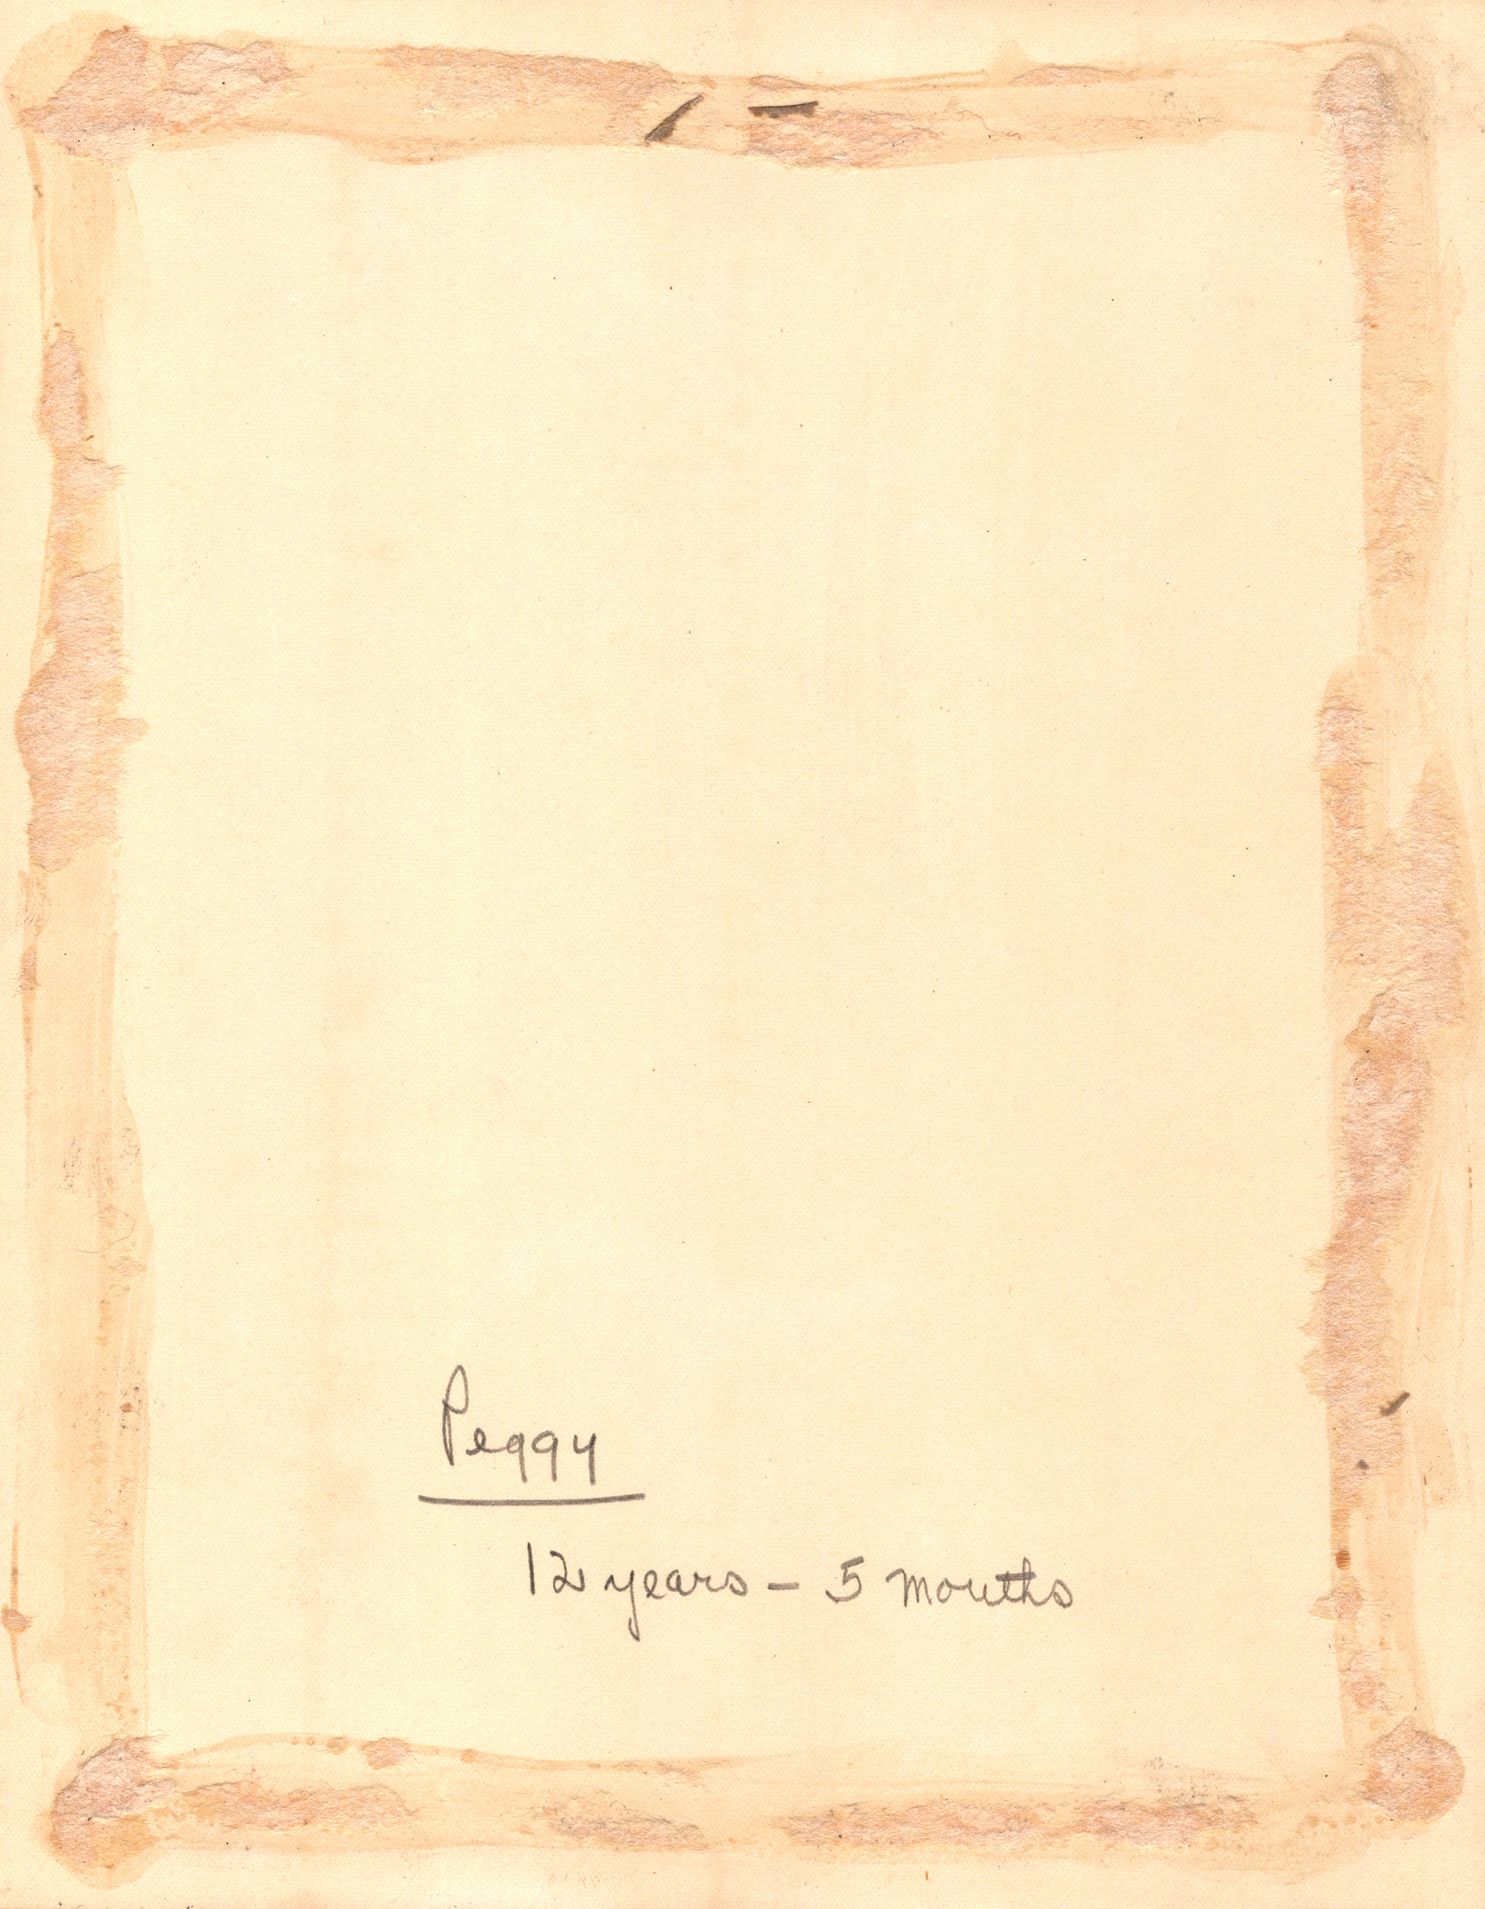 Peggy
12 years - 5 months